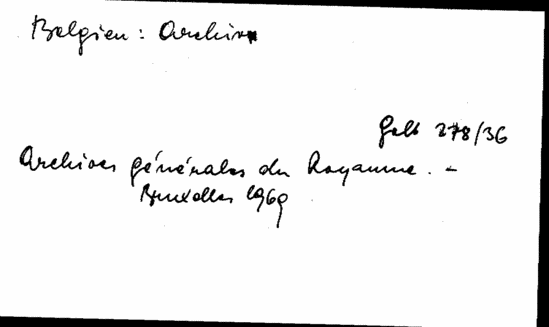 Belgien: Archive
Gelb 278/36
Archives générales du Royaume. -
Bruxelles 1969